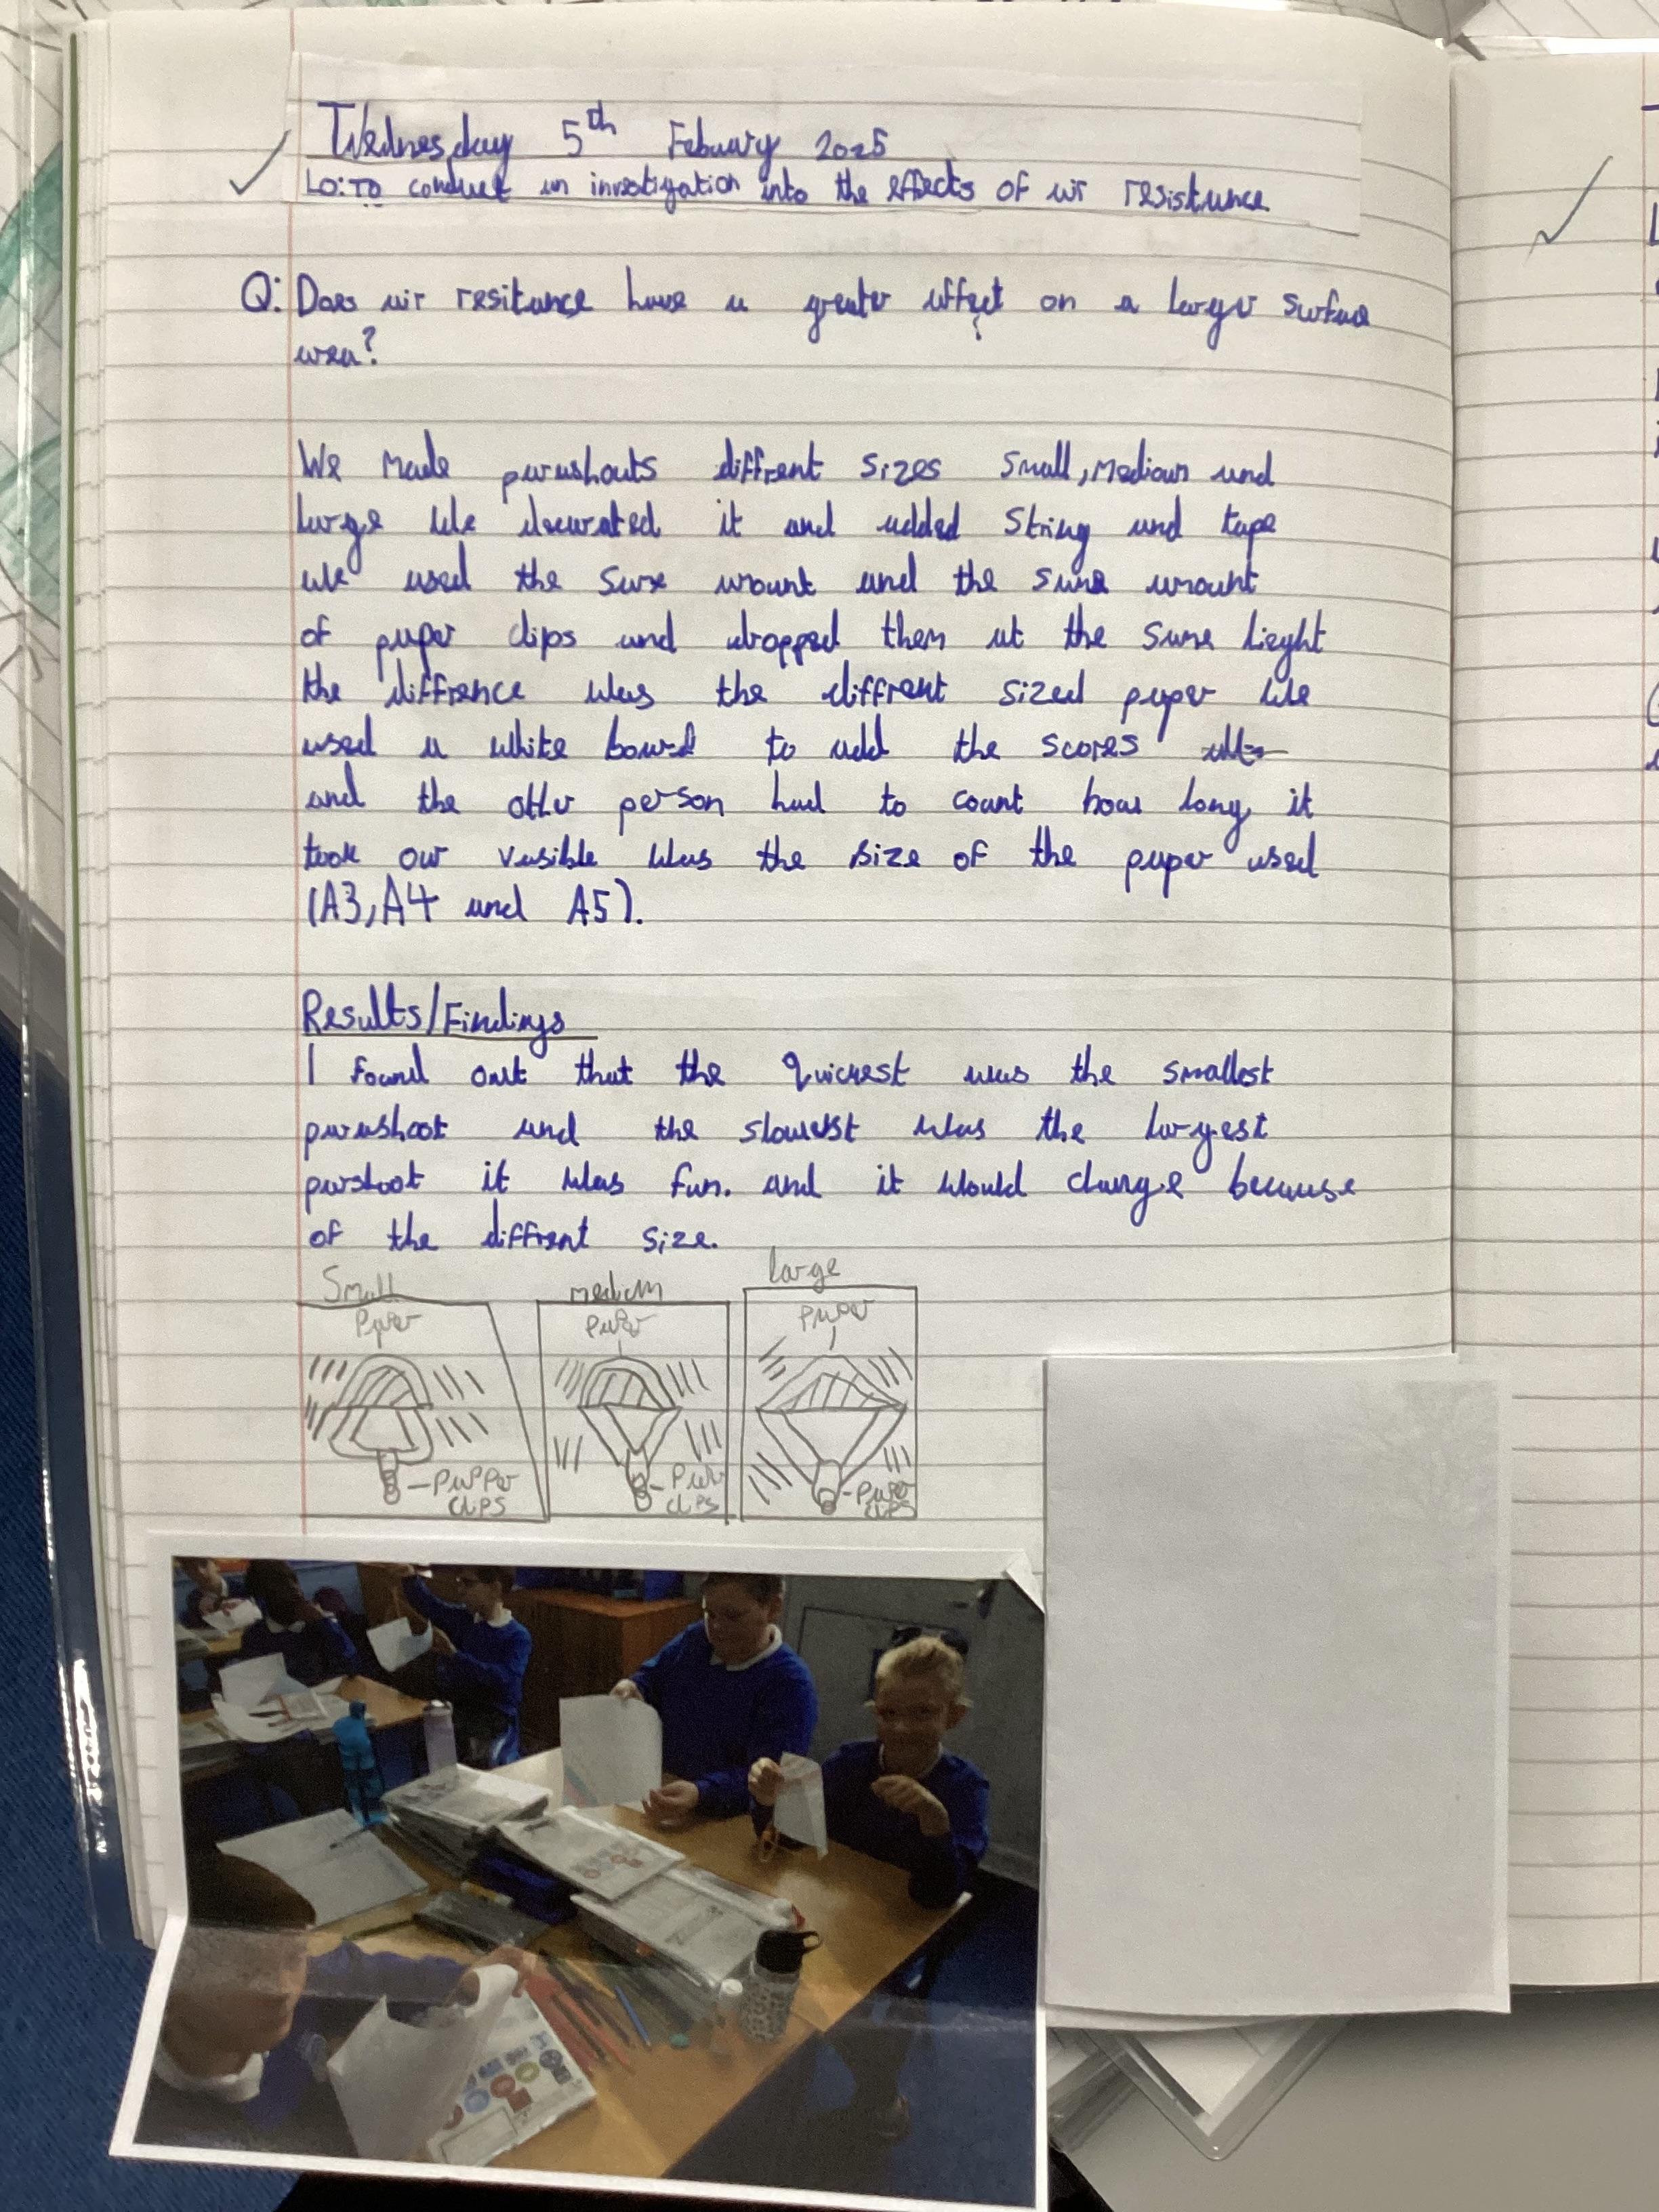 Wednesday 5th Febuary 2025
LO: TO conduct an investigation into the effects of air resistance.
Q: Does air resitance have a greater affect on a larger surface
area?
We made parashouts diffrent sizes small, mediam and
large We decorated it and added string and tape
we used the same amount and the same amount
of paper clips and dropped them at the same hieght
the diffrence was the diffrent sized paper We
used a white board to add the scores
and the other person had to count how long it
took our vasible was the size of the paper used
(A3, A4 and A5).
Results/Findings
I found out that the quickest was the smallest
parashoot and the slowest was the largest
parshoot it was fun. and it would change because
of the diffrent size.
Small medium large
Paper Paper Paper
- Papper clips
- Paper clips
- Paper clips